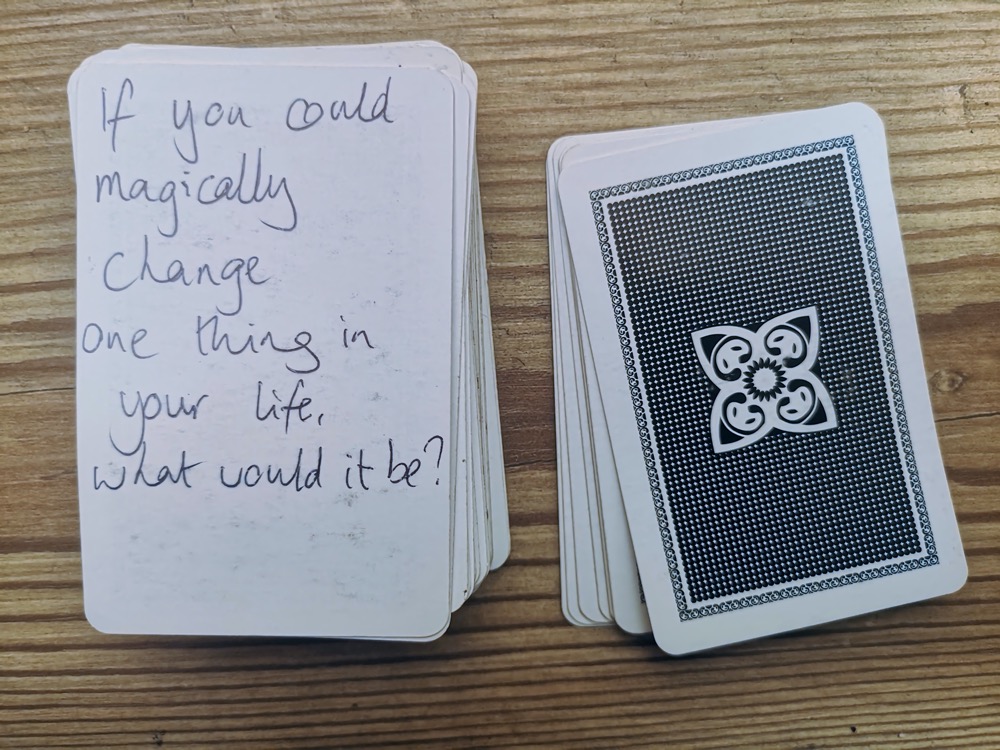 If you could
magically
change
one thing in
your life,
what would it be?